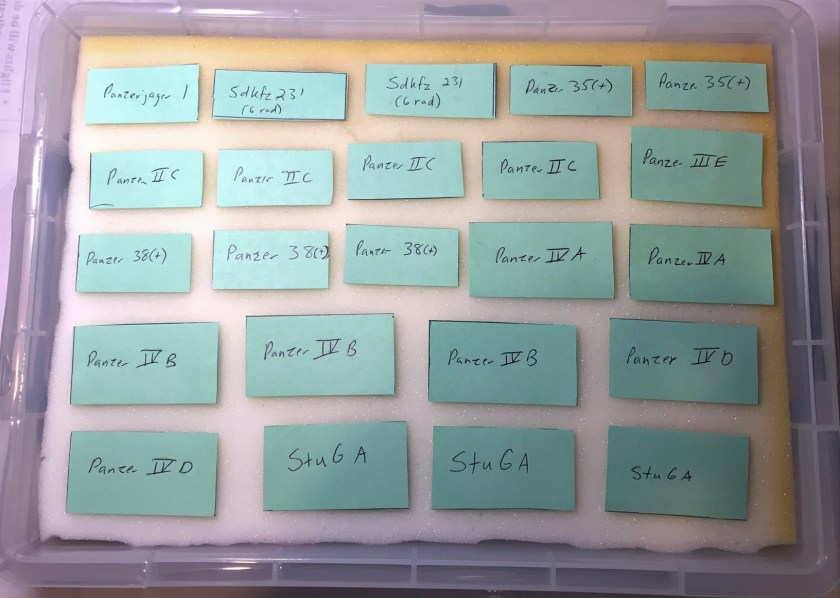 Panzerjager 1
Sdkfz 231
(6 rad)
Sdkfz 231
(6 rad)
Panzer 35(t)
Panzer 35(t)
Panzer II C
Panzer II C
Panzer II C
Panzer II C
Panzer III E
Panzer 38(t)
Panzer 38(t)
Panzer 38(t)
Panzer IV A
Panzer IV A
Panzer IV B
Panzer IV B
Panzer IV B
Panzer IV D
Panzer IV D
StuG A
StuG A
StuG A